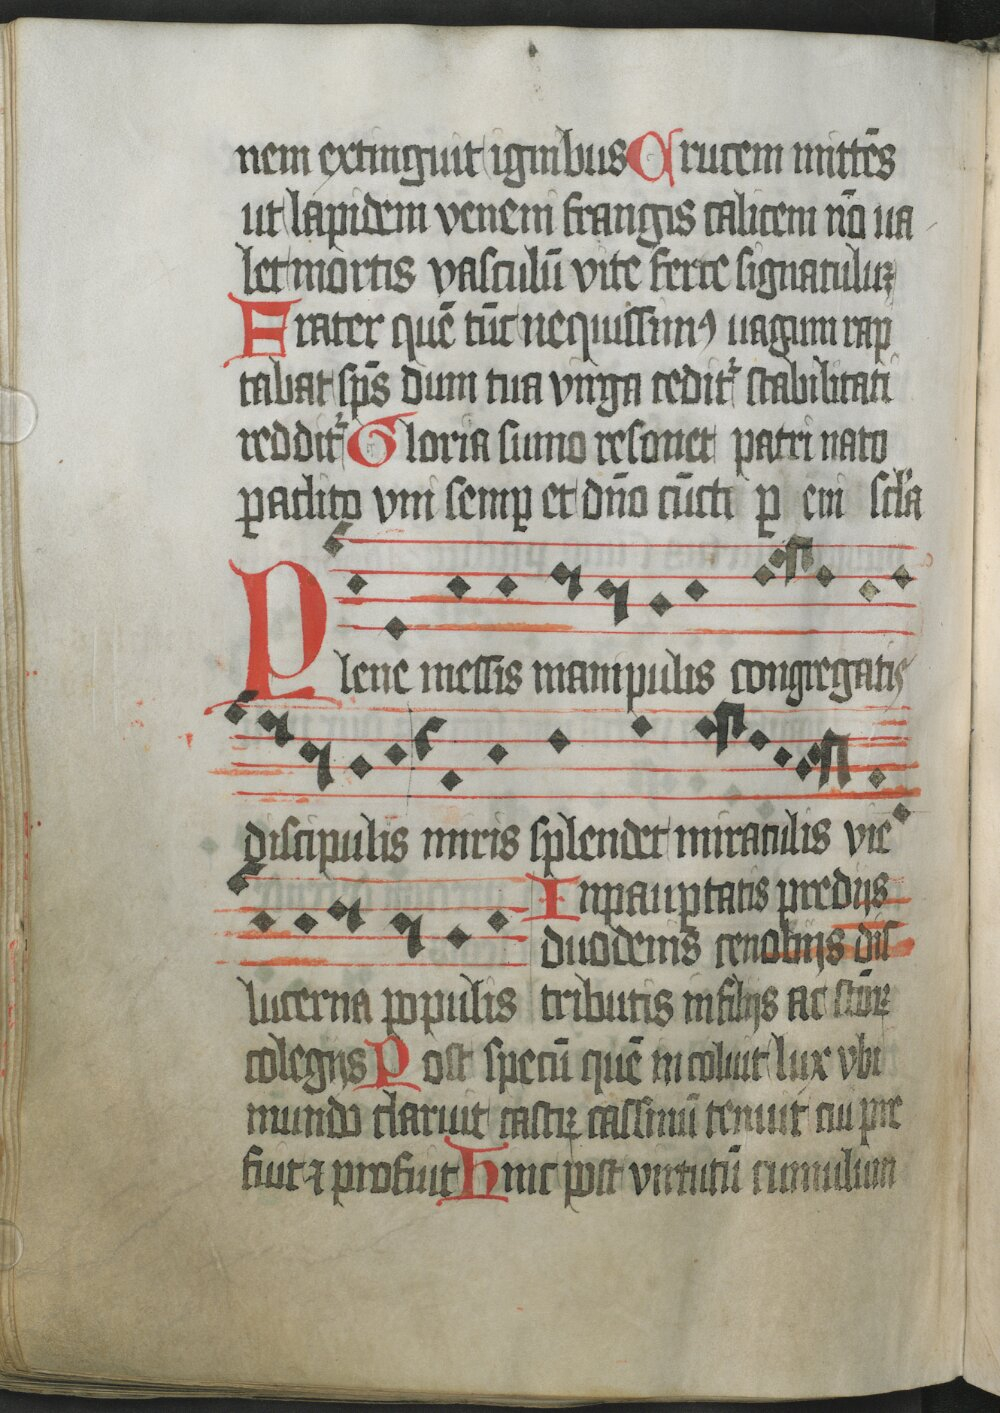 nem extinguit ignibus Crucem mittēs
ut lapidem veneni frangis calicem nō ua
let mortis vasculū vite ferre signaculuꝫ
Frater quē tūc nequissimꝰ uagum rap
tabat sp̄s dum tua virga cedit᷑ stabilitati
reddit᷑ Gloria sūmo resonet patri nato
paclito vni semꝑ et dn̄o cūcti ꝑ em scl̓a
Plene messis manipulis congregatis
discipulis miris splendet miraculis vie
Inpauꝑtatis predijs
duodenis cenobijs dis
lucerna populis tributis in filijs ac
colegijs Post specū quē in coluit lux vbi
mundo claruit castꝝ cassinū tenuit cui pre
fuit ⁊ profuit Hinc post virtutū cumulum